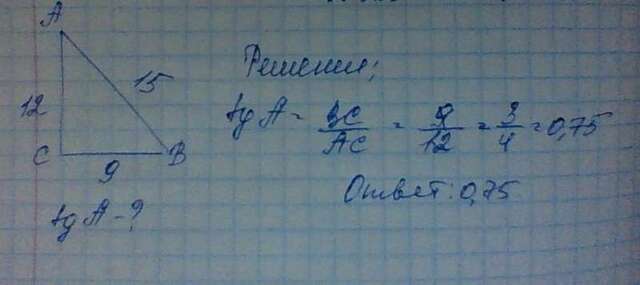 A
12
15
C
9
B
tg A - ?
Решение;
tg A = BC/AC = 9/12 = 3/4 = 0,75
Ответ: 0,75